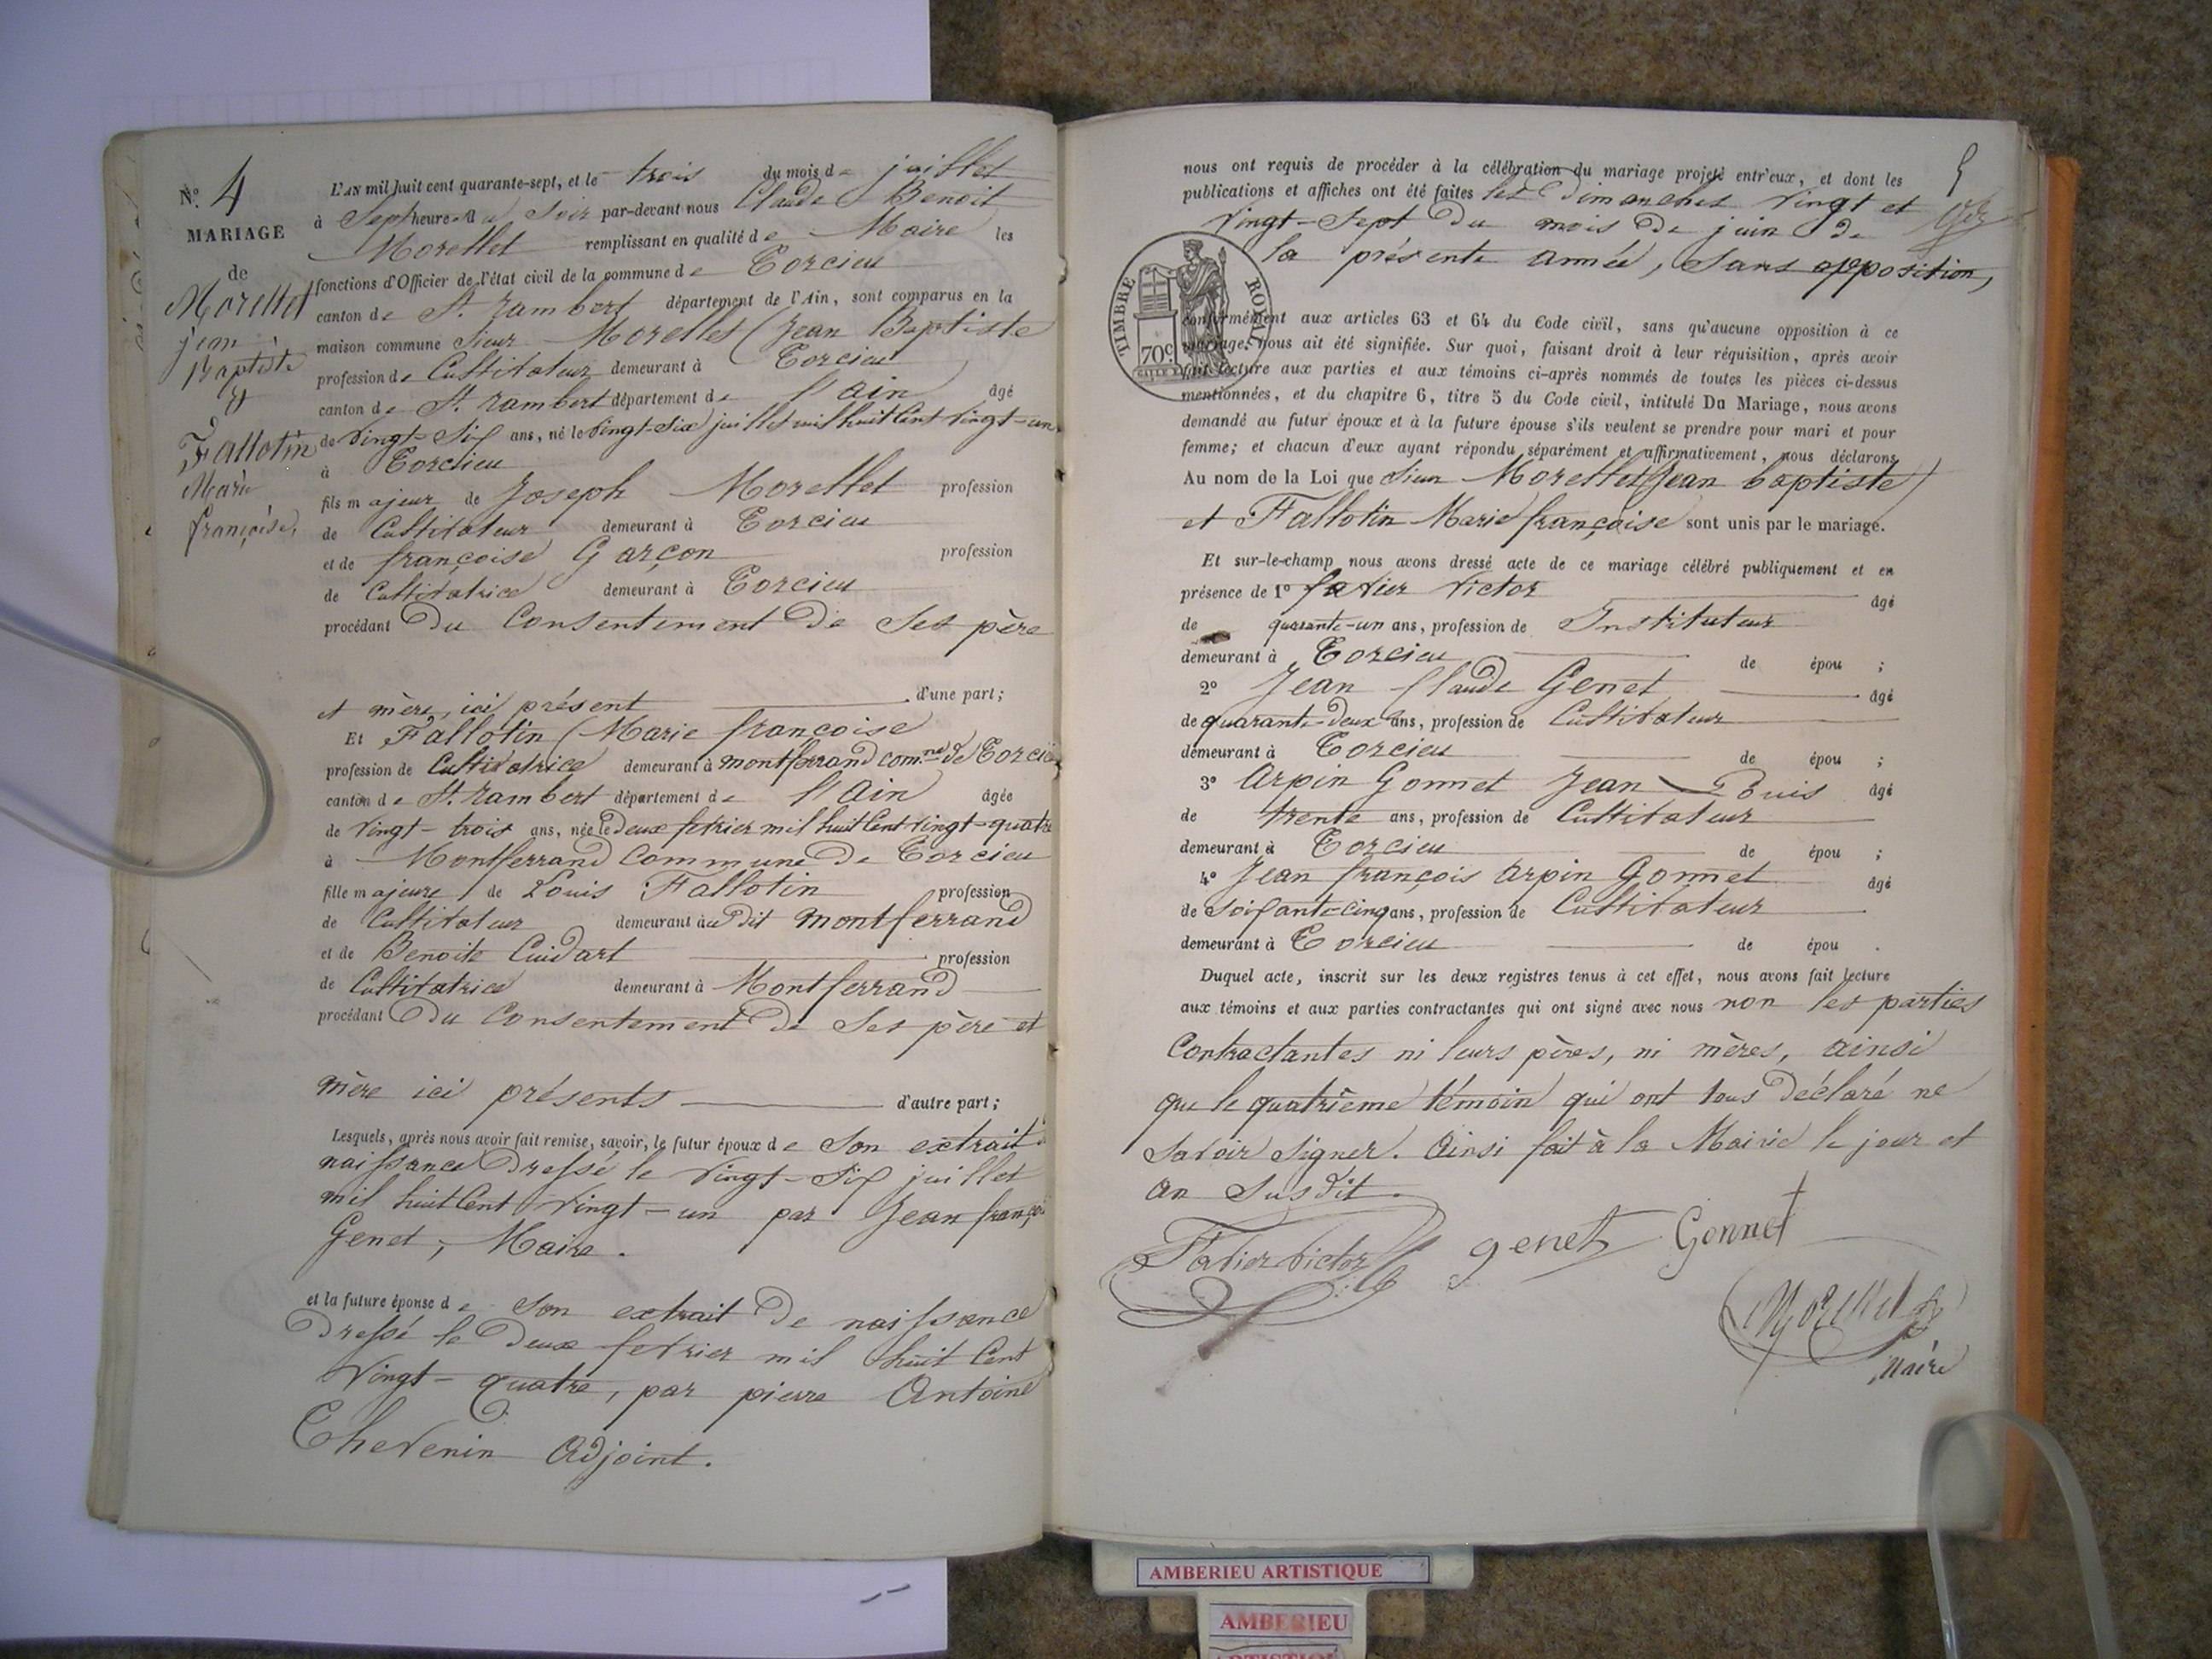 N.º 4
MARIAGE
de
Morellet
jean
Baptiste
et
Fallotin
Marie
françoise,
L'AN mil huit cent quarante-sept, et le trois du mois de juillet
à Sept heures du Soir par-devant nous Claude Benoit
Morellet remplissant en qualité de Maire les
fonctions d'Officier de l'état civil de la commune de Torcieu
canton de St. Rambert département de l'Ain, sont comparus en la
maison commune sieur Morellet (Jean Baptiste
profession de Cultivateur demeurant à Torcieu
canton de St. Rambert département de l'Ain âgé
de vingt-six ans, né le vingt-six juillet mil huit Cent vingt-un
à Torcieu
fils majeur de Joseph Morellet profession
de Cultivateur demeurant à Torcieu
et de françoise Garçon profession
de Cultivatrice demeurant à Torcieu
procédant Du Consentement De Ses père
et mère, ici présent d'une part;
Et Fallotin (Marie françoise
profession de Cultivatrice demeurant à montferrand com.ne de Torcieu
canton de St. Rambert département de l'Ain âgée
de vingt-trois ans, née le Deux fevrier mil huit Cent vingt-quatre
à Montferrand Commune De Torcieu
fille majeure de Louis Fallotin profession
de Cultivateur demeurant au Dit montferrand
et de Benoite Cuidart profession
de Cultivatrice demeurant à Montferrand
procédant Du Consentement De Ses père et
mère ici présents d'autre part;
Lesquels, après nous avoir fait remise, savoir, le futur époux de Son extrait de
naissance Dressé le vingt-six juillet
mil huit Cent vingt-un par Jean françois
Genet, Maire.
et la future épouse de Son extrait De naissance
Dressé le Deux fevrier mil huit Cent
vingt-quatre, par pierre Antoine
Thevenin Adjoint.
5
nous ont requis de procéder à la célébration du mariage projeté entr'eux, et dont les
publications et affiches ont été faites les Dimanches vingt et
vingt-sept Du mois De juin De
la présente année, Sans opposition,
TIMBRE ROYAL
70c.
conformément aux articles 63 et 64 du Code civil, sans qu'aucune opposition à ce
mariage nous ait été signifiée. Sur quoi, faisant droit à leur réquisition, après avoir
fait lecture aux parties et aux témoins ci-après nommés de toutes les pièces ci-dessus
mentionnées, et du chapitre 6, titre 5 du Code civil, intitulé Du Mariage, nous avons
demandé au futur époux et à la future épouse s'ils veulent se prendre pour mari et pour
femme; et chacun d'eux ayant répondu séparément et affirmativement, nous déclarons
Au nom de la Loi que Sieur Morellet (Jean baptiste)
et Fallotin Marie françoise sont unis par le mariage.
Et sur-le-champ nous avons dressé acte de ce mariage célébré publiquement et en
présence de 1º favier victor âgé
de quarante-un ans, profession de Instituteur
demeurant à Torcieu de épou ;
2º Jean Claude Genet âgé
de quarante-deux ans, profession de Cultivateur
demeurant à Torcieu de épou ;
3º Arpin Gonnet Jean Louis âgé
de trente ans, profession de Cultivateur
demeurant à Torcieu de épou ;
4º Jean françois Arpin Gonnet âgé
de soixante-cinq ans, profession de Cultivateur
demeurant à Torcieu de épou .
Duquel acte, inscrit sur les deux registres tenus à cet effet, nous avons fait lecture
aux témoins et aux parties contractantes qui ont signé avec nous non les parties
Contractantes ni leurs pères, ni mères, ainsi
que le quatrième témoin qui ont tous Déclaré ne
savoir signer. Ainsi fait à la Mairie le jour et
an susdit.
Favier Victor genet Gonnet
Morellet
Maire
AMBERIEU ARTISTIQUE
AMBERIEU
ARTISTIQUE